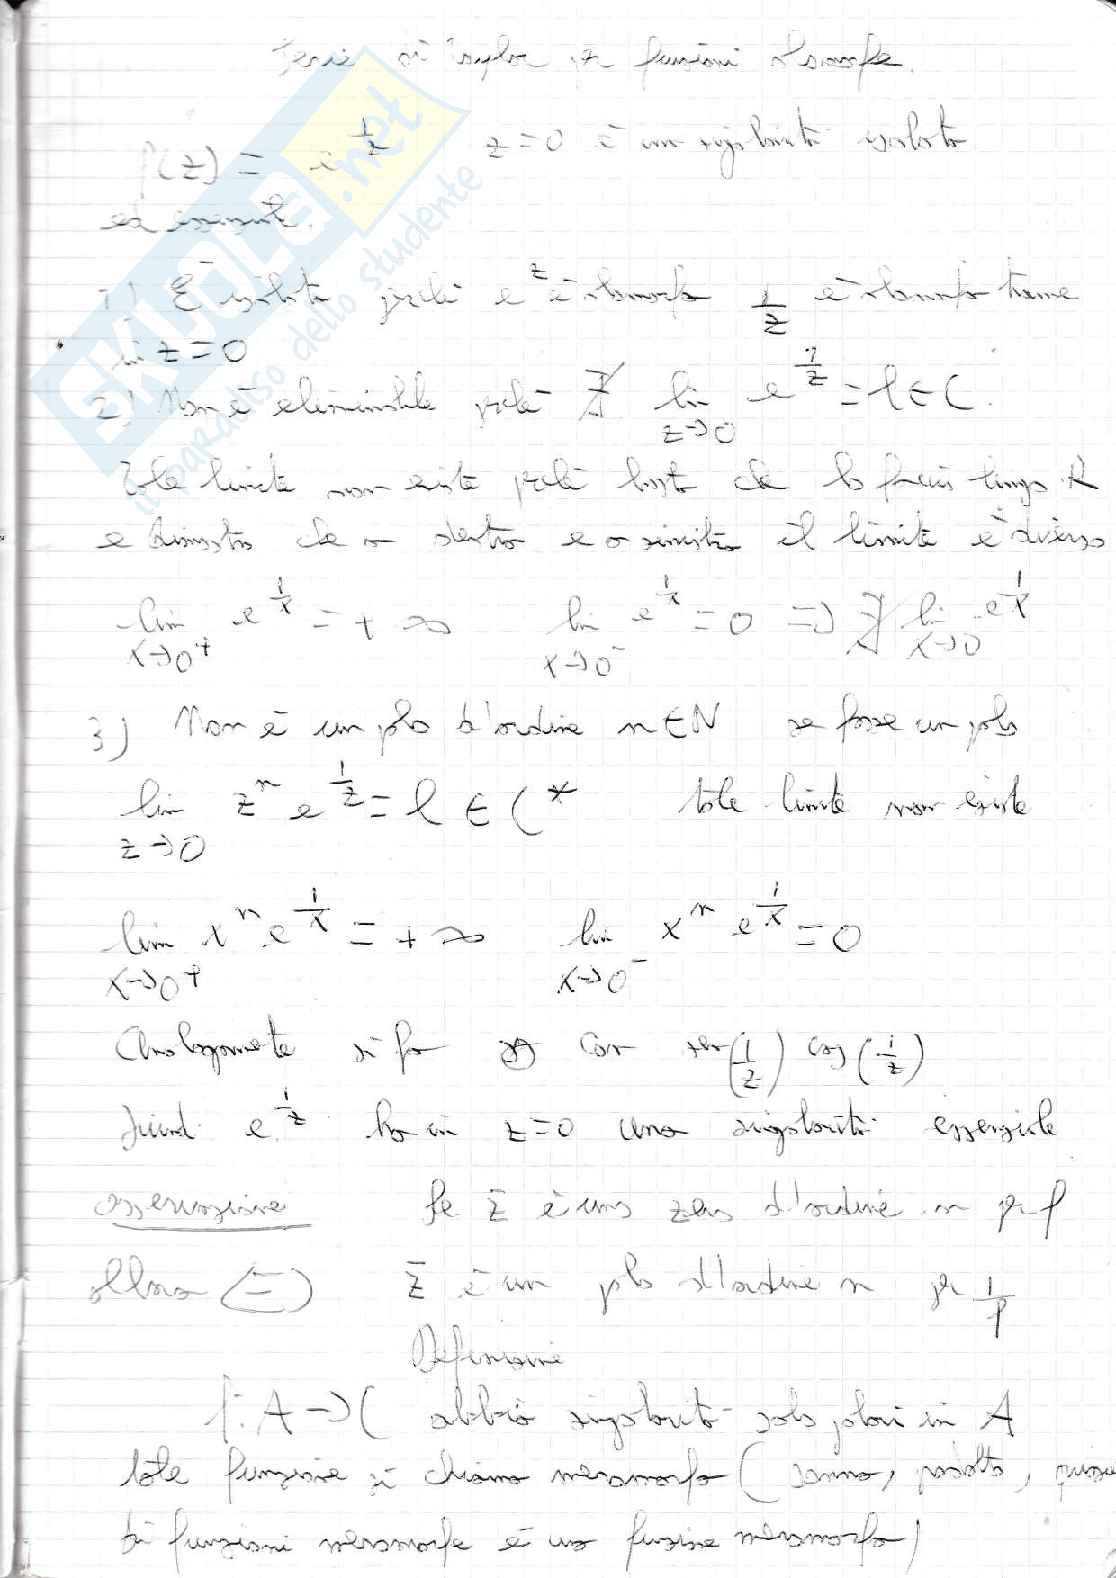 Serie di Taylor per funzioni olomorfe.
f(z) = e^{1/z} z=0 è una singolarità isolata
ed essenziale.
1) È isolata perché e^z è olomorfa 1/z è olomorfa tranne
in z=0
2) Non è eliminabile perché ∄ lim_{z→0} e^{1/z} = l ∈ C.
Tale limite non esiste perché basta che lo faccia lungo R
e dimostro che a destra e a sinistra il limite è diverso
lim_{x→0^+} e^{1/x} = +∞ lim_{x→0^-} e^{1/x} = 0 => ∄ lim_{x→0} e^{1/x}
3) Non è un polo d'ordine n∈N se fosse un polo
lim_{z→0} z^n e^{1/z} = l ∈ C* tale limite non esiste
lim_{x→0^+} x^n e^{1/x} = +∞ lim_{x→0^-} x^n e^{1/x} = 0
Analogamente si fa con sen(1/z) cos(1/z)
Quindi e^{1/z} ha in z=0 una singolarità essenziale
osservazione Se z̄ è uno zero d'ordine n per f
allora z̄ è un polo d'ordine n per 1/f
Definizione
f: A → C abbia singolarità solo polari in A
tale funzione si chiama meromorfa (somma, prodotto,
di funzioni meromorfe è una funzione meromorfa)
SKUOLA.net
il paradiso dello studente